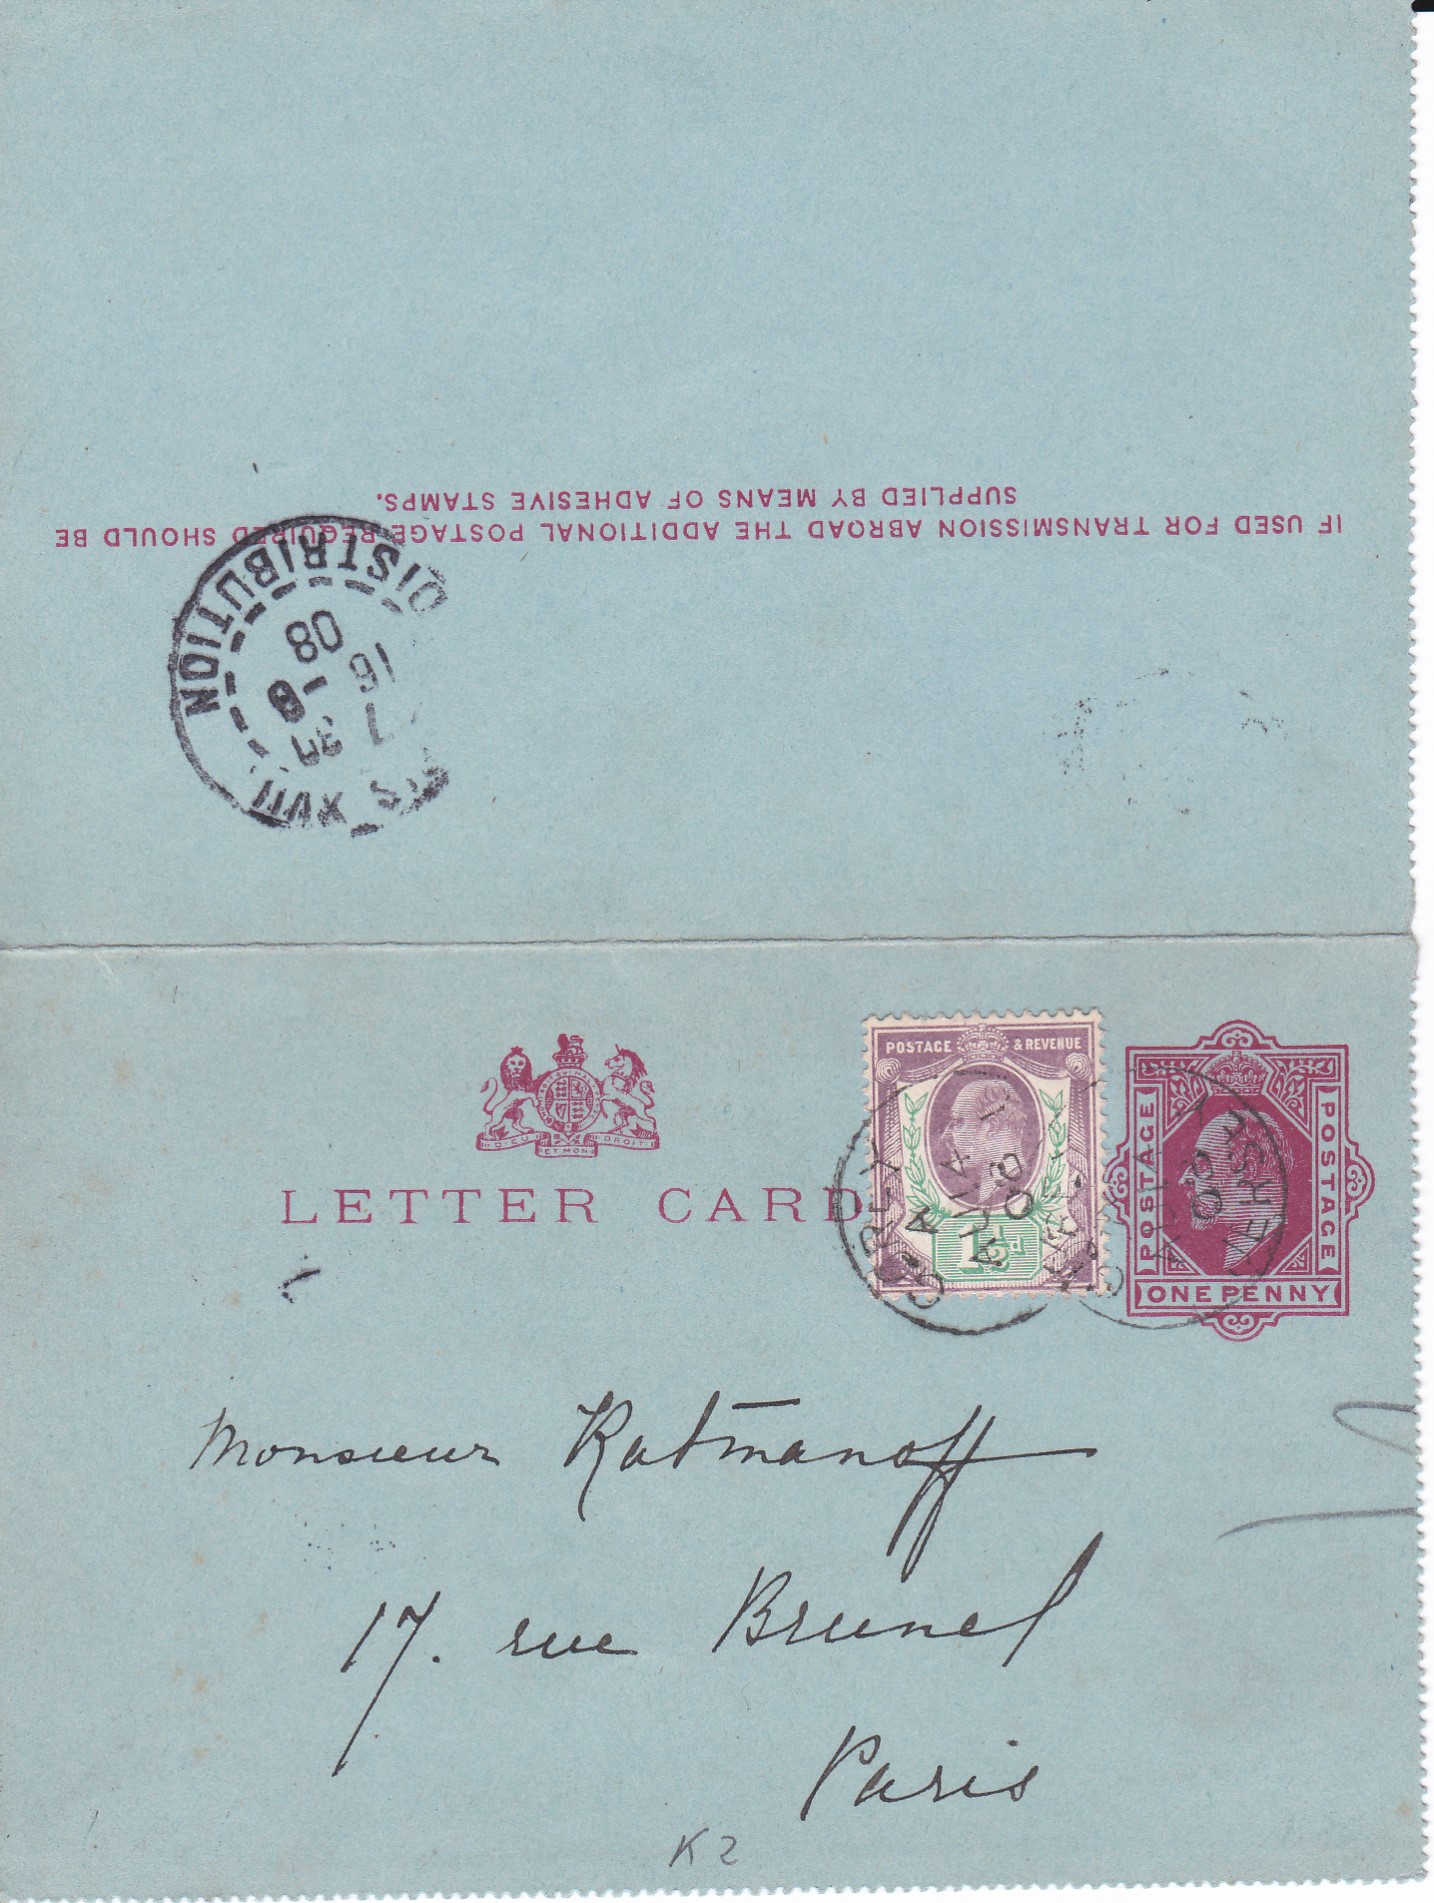 IF USED FOR TRANSMISSION ABROAD THE ADDITIONAL POSTAGE REQUIRED SHOULD BE
SUPPLIED BY MEANS OF ADHESIVE STAMPS.
DISTRIBUTION
16
08
POSTAGE & REVENUE
1½d
POSTAGE
POSTAGE
ONE PENNY
DIEU ET MON DROIT
LETTER CARD
GUERNSEY
AU 14
08
Monsieur Ratmanoff
17. rue Brunel
Paris
K2